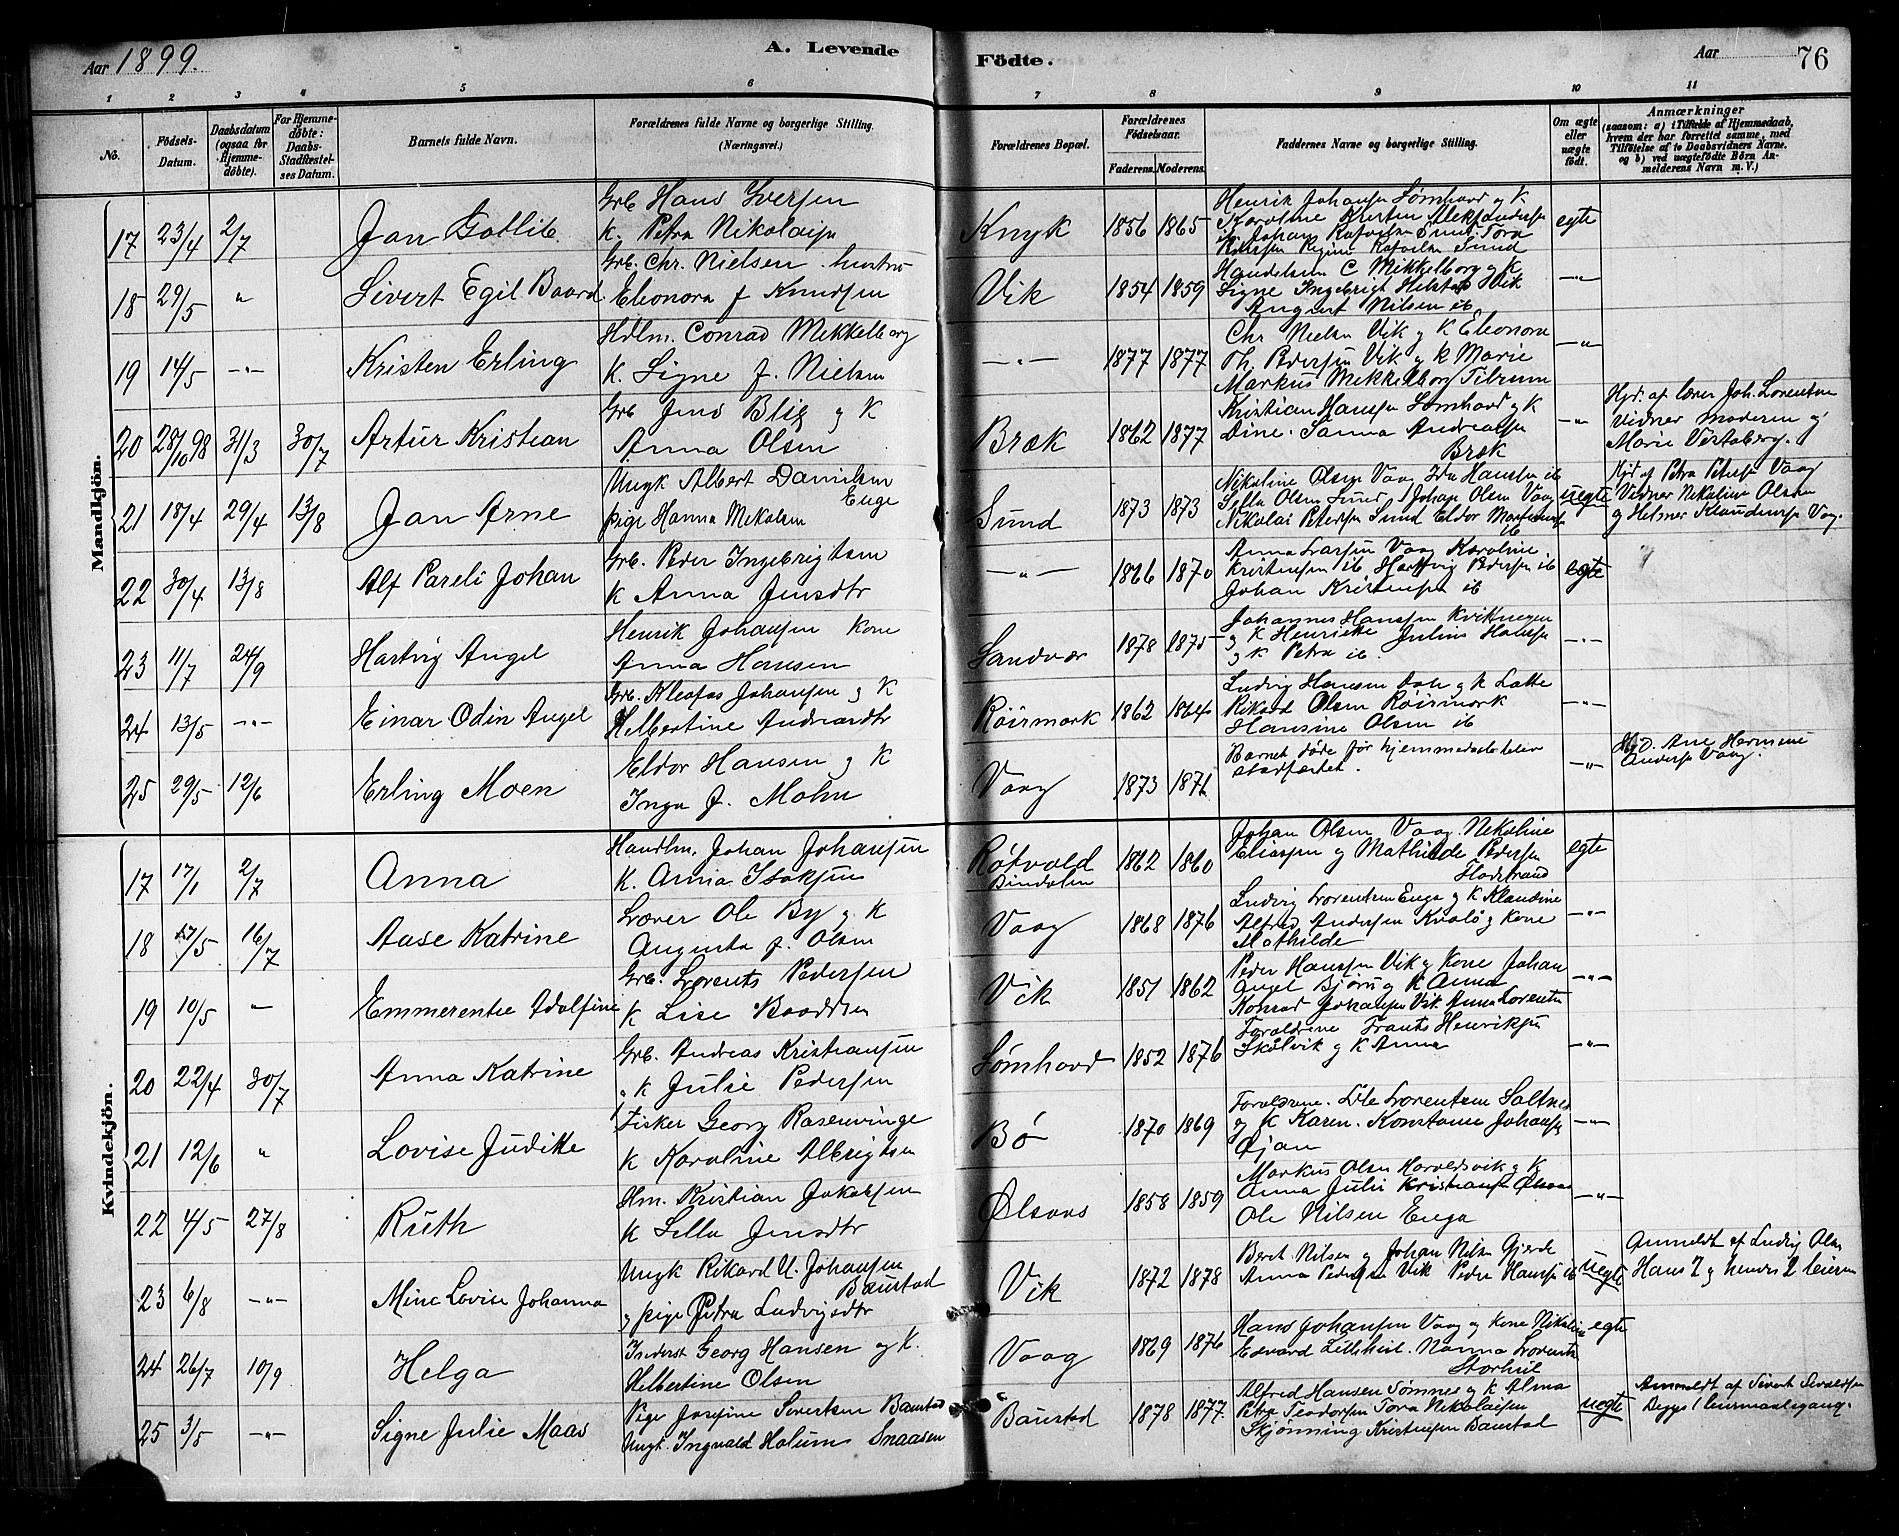 Aar 1899.
A. Levende
Födte.
Aar
76
1 2 3 4 5 6 7 8 9 10 11
No.
Födsels-Datum.
Daabsdatum (ogsaa for Hjemme-døbte).
For Hjemme-døbte: Daabs-Stadfæstel-ses Datum.
Barnets fulde Navn.
Forældrenes fulde Navne og borgerlige Stilling.
(Næringsvei.)
Forældrenes Bopæl.
Forældrenes Födselsaar.
Faderens. Moderens.
Faddernes Navne og borgerlige Stilling.
Om ægte eller uægte født.
Anmærkninger
(saasom: a) i Tilfælde af Hjemmedaab,
hvem der har forrettet samme, med
Tilföielse af to Daabsvidners Navne.
og b) ved uægtefödte Börn An-
melderens Navn m. V.)
Mandkjön.
17 23/4 2/7 Jan Gotlib Grb Hans Iversen
K. Petra Nikolaisn
Knyk 1856 1865 Henrik Johansen Sømhovd og K
Karoline Kristen Aleksandersen
egte
18 29/5 " Sivert Egil Baard Grb. Chr. Nielsen hustru
Eleonora f Knudsen
Vik 1854 1859 Handelsm C Mikkelborg og K
Signe Ingebrigt Vik
August Nilsen ib
—"—
19 14/5 —"— Kristen Erling Hdlm. Conrad Mikkelborg
K. Signe f. Nielsen
—"— 1877 1877 Chr Nielsen Vik og K Eleonora
Th. Pedersen Vik og K Marie
Markus Mikkelborg Tilrum
—"—
20 28/10 98 31/3 30/7 Artur Kristian Grb Jens Blix og K
Anna Olsen
Bræk 1862 1877 Kristian Hansen Sømhovd og K
Dine. Sanna Andreasen
Bræk
—"—
Hjd. af lærer Joh. Lorentsen
Vidner moderen og
Marie Virtsberg.
21 18/4 29/4 13/8 Jan Arne Ungk Albert Danilsen
Enge
pige Hanna Nikolsen
Sund 1873 1873 Nikoline Olsen Vaag Ida Hansen ib
Silla Olsen Sund Johan Olsen Vaag
Nikolai Petersen Sund Eldor
uegte
Hjd af Petra Petersen Vaag
Vidner Nikoline Olsen
og Helmer Klaudiusen Vaag.
22 30/4 13/8 Alf Pareli Johan Grb. Peder Ingebrigtsen
K Anna Jensdtr
—"— 1866 1870 Anna Larsen Vaag Karoline
Kristensen ib Hartvig Pedersen ib
Johan Kristensen ib
egte
23 11/7 24/9 Hartvig Angel Henrik Johansen Kone
Anna Hansen
Sandvær 1878 1875 Johannes Hansen
og K Henrikke Julius
og K Petra ib.
—"—
24 13/5 —"— Einar Odin Angel Grb. Kleofas Johansen og K
Helbertine Andreasdtr
Röirmark 1862 1864 Ludvig Hansen og K Lotte
Rikard Olsen Røirmark
Hansine Olsen ib
—"—
25 29/5 12/6 Erling Moen Eldor Hansen og K
Inga f. Mohn
Vaag 1873 1871 Barnet døde før hjemmedaaben
stadfæstet.
—"—
Hjd. Ane Hermine
Anders Vaag.
Kvindekjön.
17 17/1 2/7 Anna Handlm. Johan Johansen
K. Anna Isaksen
Røtvold
Bindalen
1862 1860 Johan Olsen Vaag Nikoline
Eliassen og Mathilde Pedersen
Horstrand
egte
18 27/5 16/7 Aase Katrine Lærer Ole By og K
Augusta f. Olsen
Vaag 1868 1876 Ludvig Lorentsen Enge og K Klaudine
Alfred Andersen Kvalø og Kone
Mathilde
—"—
19 10/5 " Emmerentse Adolfine Grb. Lorents Pedersen
K Lise Baardsen
Vik 1851 1862 Peder Hansen Vik og Kone Johan
Angel Bjørn og K Anna
Konrad Johansen Vik Anna Lorentsn
—"—
20 22/4 30/7 Anna Katrine Grb. Andreas Kristiansen
K Julie Pedersen
Sømhovd 1852 1876 Forældrene Frants Henriksen
Skålvik og K Anna
—"—
21 12/6 " Lovise Juditte Fisker Georg Rasenvinge
K Karoline Albrigtsen
Bø 1870 1869 Forældrene. Ole Lorentsen Saltnes
og K Karen. Konstanse Johansen
Øjan
—"—
22 4/5 27/8 Ruth Hm. Kristian Jakobsen
K Silla Jensdtr
Ølsaas 1858 1859 Markus Olsen Haroldsvik og K
Anna Juli Kristiansen
Ole Nilsen Enga
—"—
23 6/8 —"— Mine Lovise Johanna Ungk Rikard U. Johansen
Baustad
og pige Petra Ludvigsdtr
Vik 1872 1878 Beret Nilsen og Johan Nilsn Gjerde
Anna Pedersen Vik Peder Hansen ib
uegte
Anmeldt af Ludvig Olsn
Hans 2 og hendes 2 leierm
24 26/7 10/9 Helga Inderst Georg Hansen og K.
Helbertine Olsen
Vaag 1869 1876 Hans Johansen Vaag og Kone Nikoline
Edvard Lilleheil. Nanna Lorentsn
Storheil
egte
25 3/5 —"— Signe Julie Maas Pige Josefine Sivertsen Baustad
Ungk. Ingvald Holum Snaasen
Baustad 1878 1877. Alfred Hansen Sømnes og K Alma
Petra Teodorsen Tora Nikolaisen
Skjønning Kristensen Baustad
uegte
Anmeldt af Sivert Sivertsen
Begges 1 leiermaalsgang.